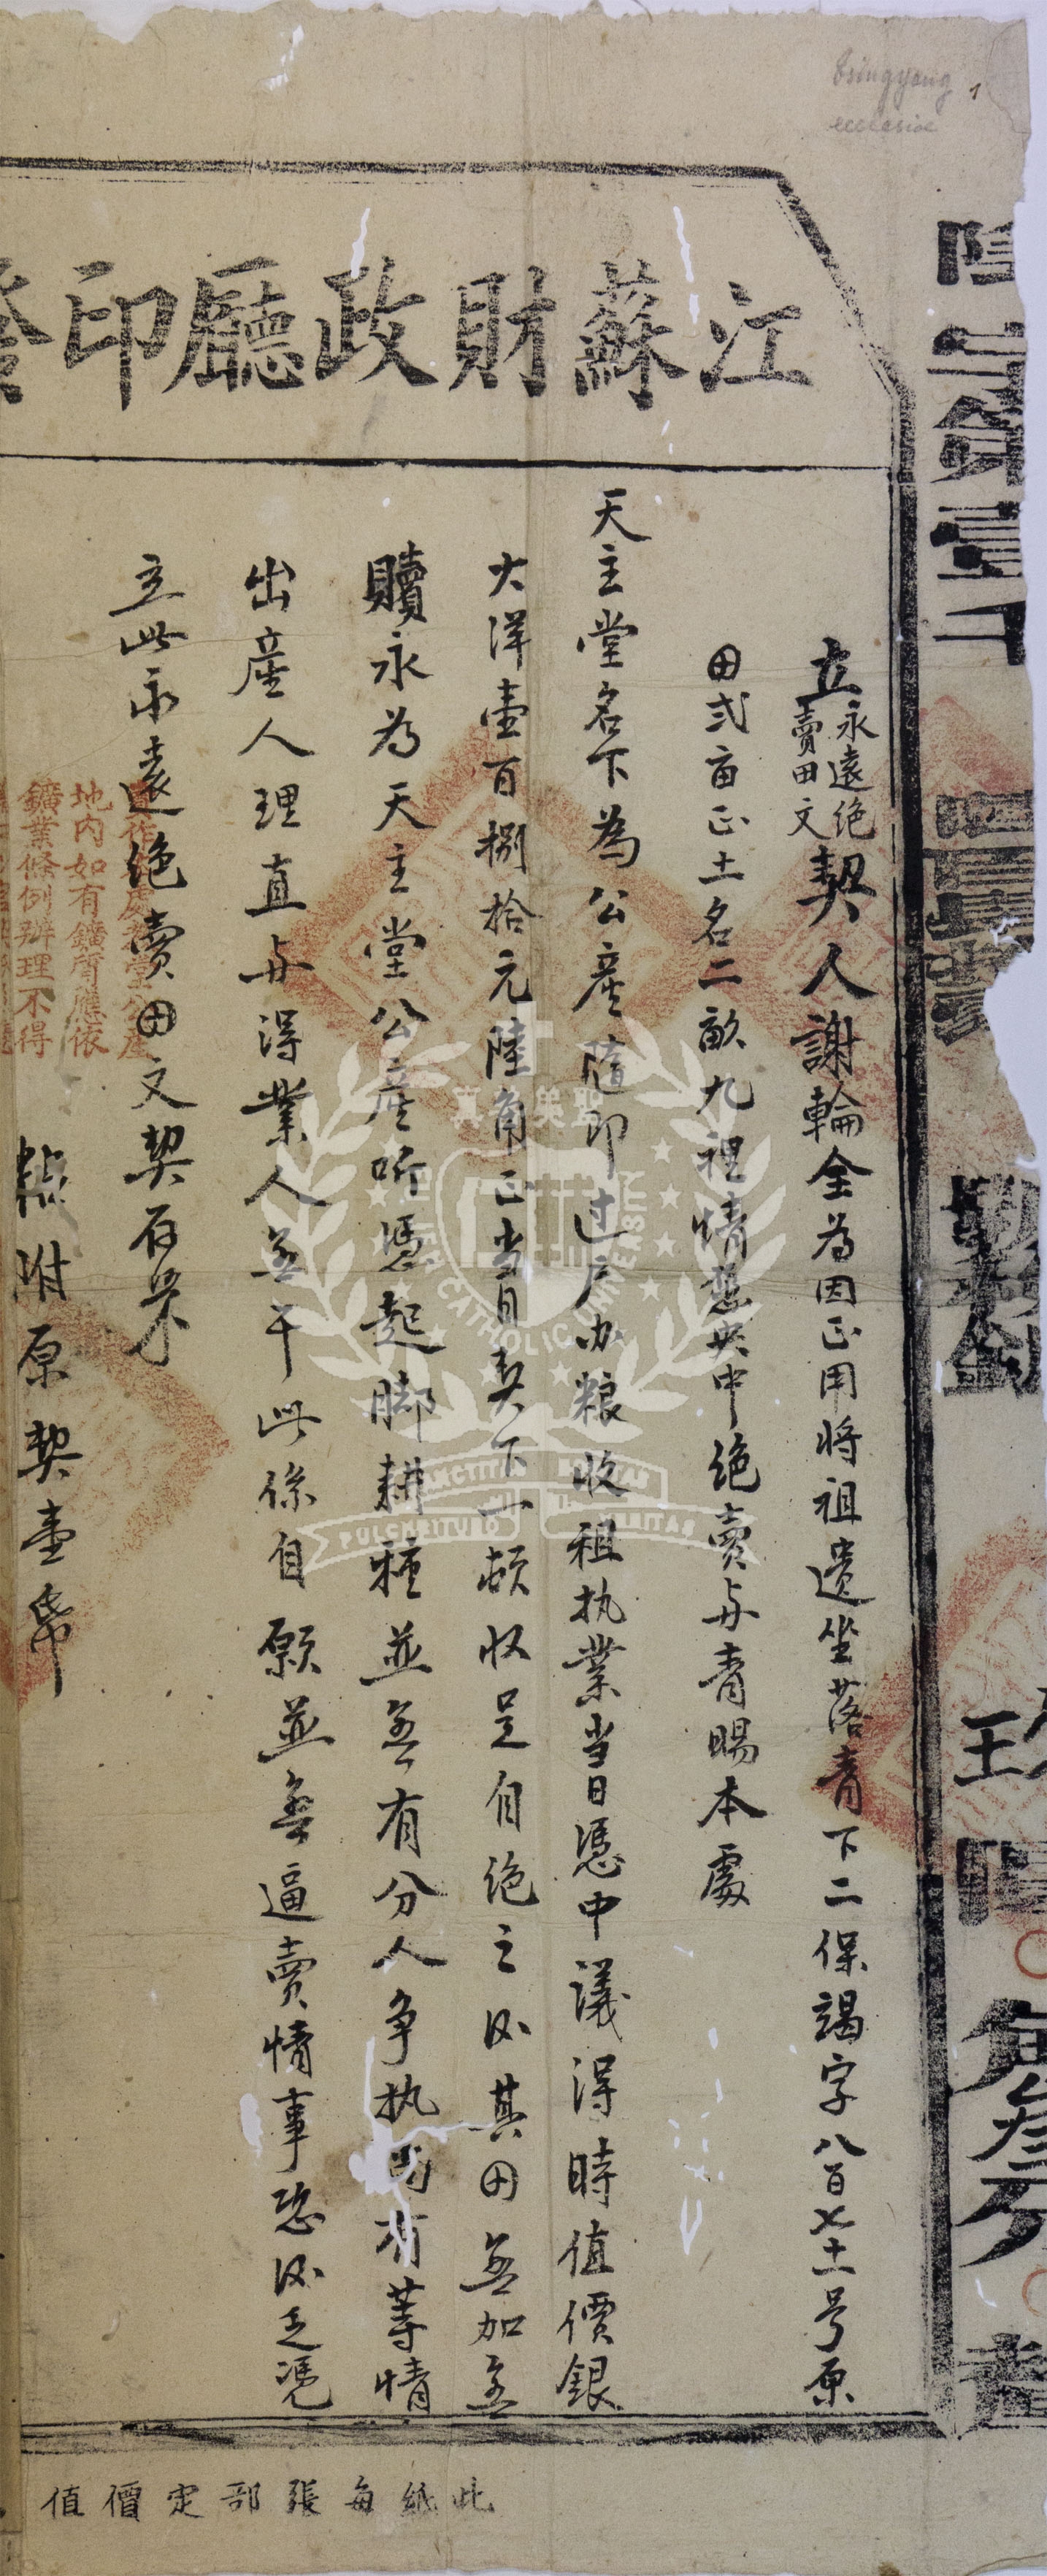 Tsingyang 1
ecclesiae
江蘇財政廳印發
立永遠絕賣田文契人謝輪全為因正用將祖遺坐落青下二保竭字八百七十一号原
田弍畝正土名二畝九祖情愿央中絕賣与青暘本處
天主堂名下為公産隨即过戶办粮收租执業当日憑中議得時值價銀
大洋壹百捌拾元陸角正当日契下一頓收足自絕之后其田無加無
贖永為天主堂公産听憑起脚耕種並無有分人争执内有等情
出産人理直与得業人無干此係自願並無逼賣情事恐后乏憑
立此永遠絕賣田文契存照
粘附原契壹帋
地内如有鑛質應依
鑛業條例辨理不得
此紙每張部定價值